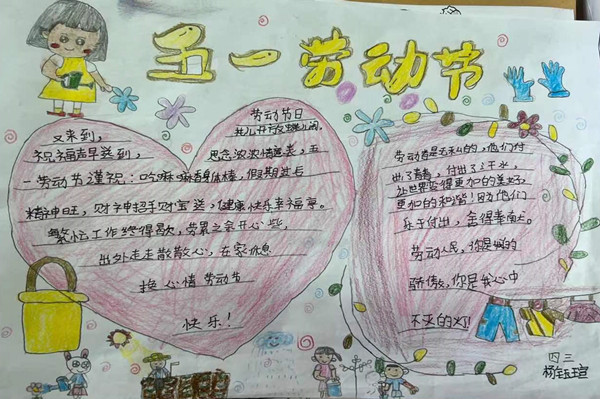 五一劳动节
劳动节日
又来到,
祝福早送到,
思念浓浓情意长,五
一劳动节谨祝:吃嘛嘛香身体棒,假期过长
精神旺,财神招手财富送,健康快乐幸福享。
繁忙工作终得歇,劳累之余开心些,
出外走走散散心,在家休息
心情 劳动节
快乐!
劳动者是无私的,他们付
出了青春,付出了汗水,
让世界变得更加的美好,
更加的和谐!因为他们
乐于付出,舍得奉献。
劳动人民,你是我的
骄傲,你是我心中
不灭的灯
四三